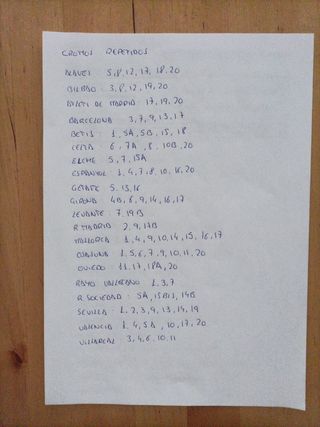 CROMOS REPETIDOS
ALAVES 5,8,12,17,18,20
BILBAO : 3,8,12,19,20
ATLETI DE MADRID : 17,19,20
BARCELONA : 3,7,9,13,17
BETIS : 1,5A,5B,15,18
CELTA : 6,7A,8,10B,20
ELCHE : 5,7,15A
ESPANYOL : 1,4,7,8,10,16,20
GETAFE : 5,15,16
GIRONA : 4B,6,9,14,16,17
LEVANTE : 7,19B
R MADRID : 2,9,17B
MALLORCA : 1,4,9,10,14,15,16,17
OSASUNA : 1,5,6,7,9,10,11,20
OVIEDO : 11,17,18A,20
RAYO VALLECANO : 1,3,7
R. SOCIEDAD : 5A, 14B
SEVILLA : 1,2,3,9,13,14,19
VALENCIA : 1,4,5A,10,17,20
VILLAREAL : 3,4,6,10,11